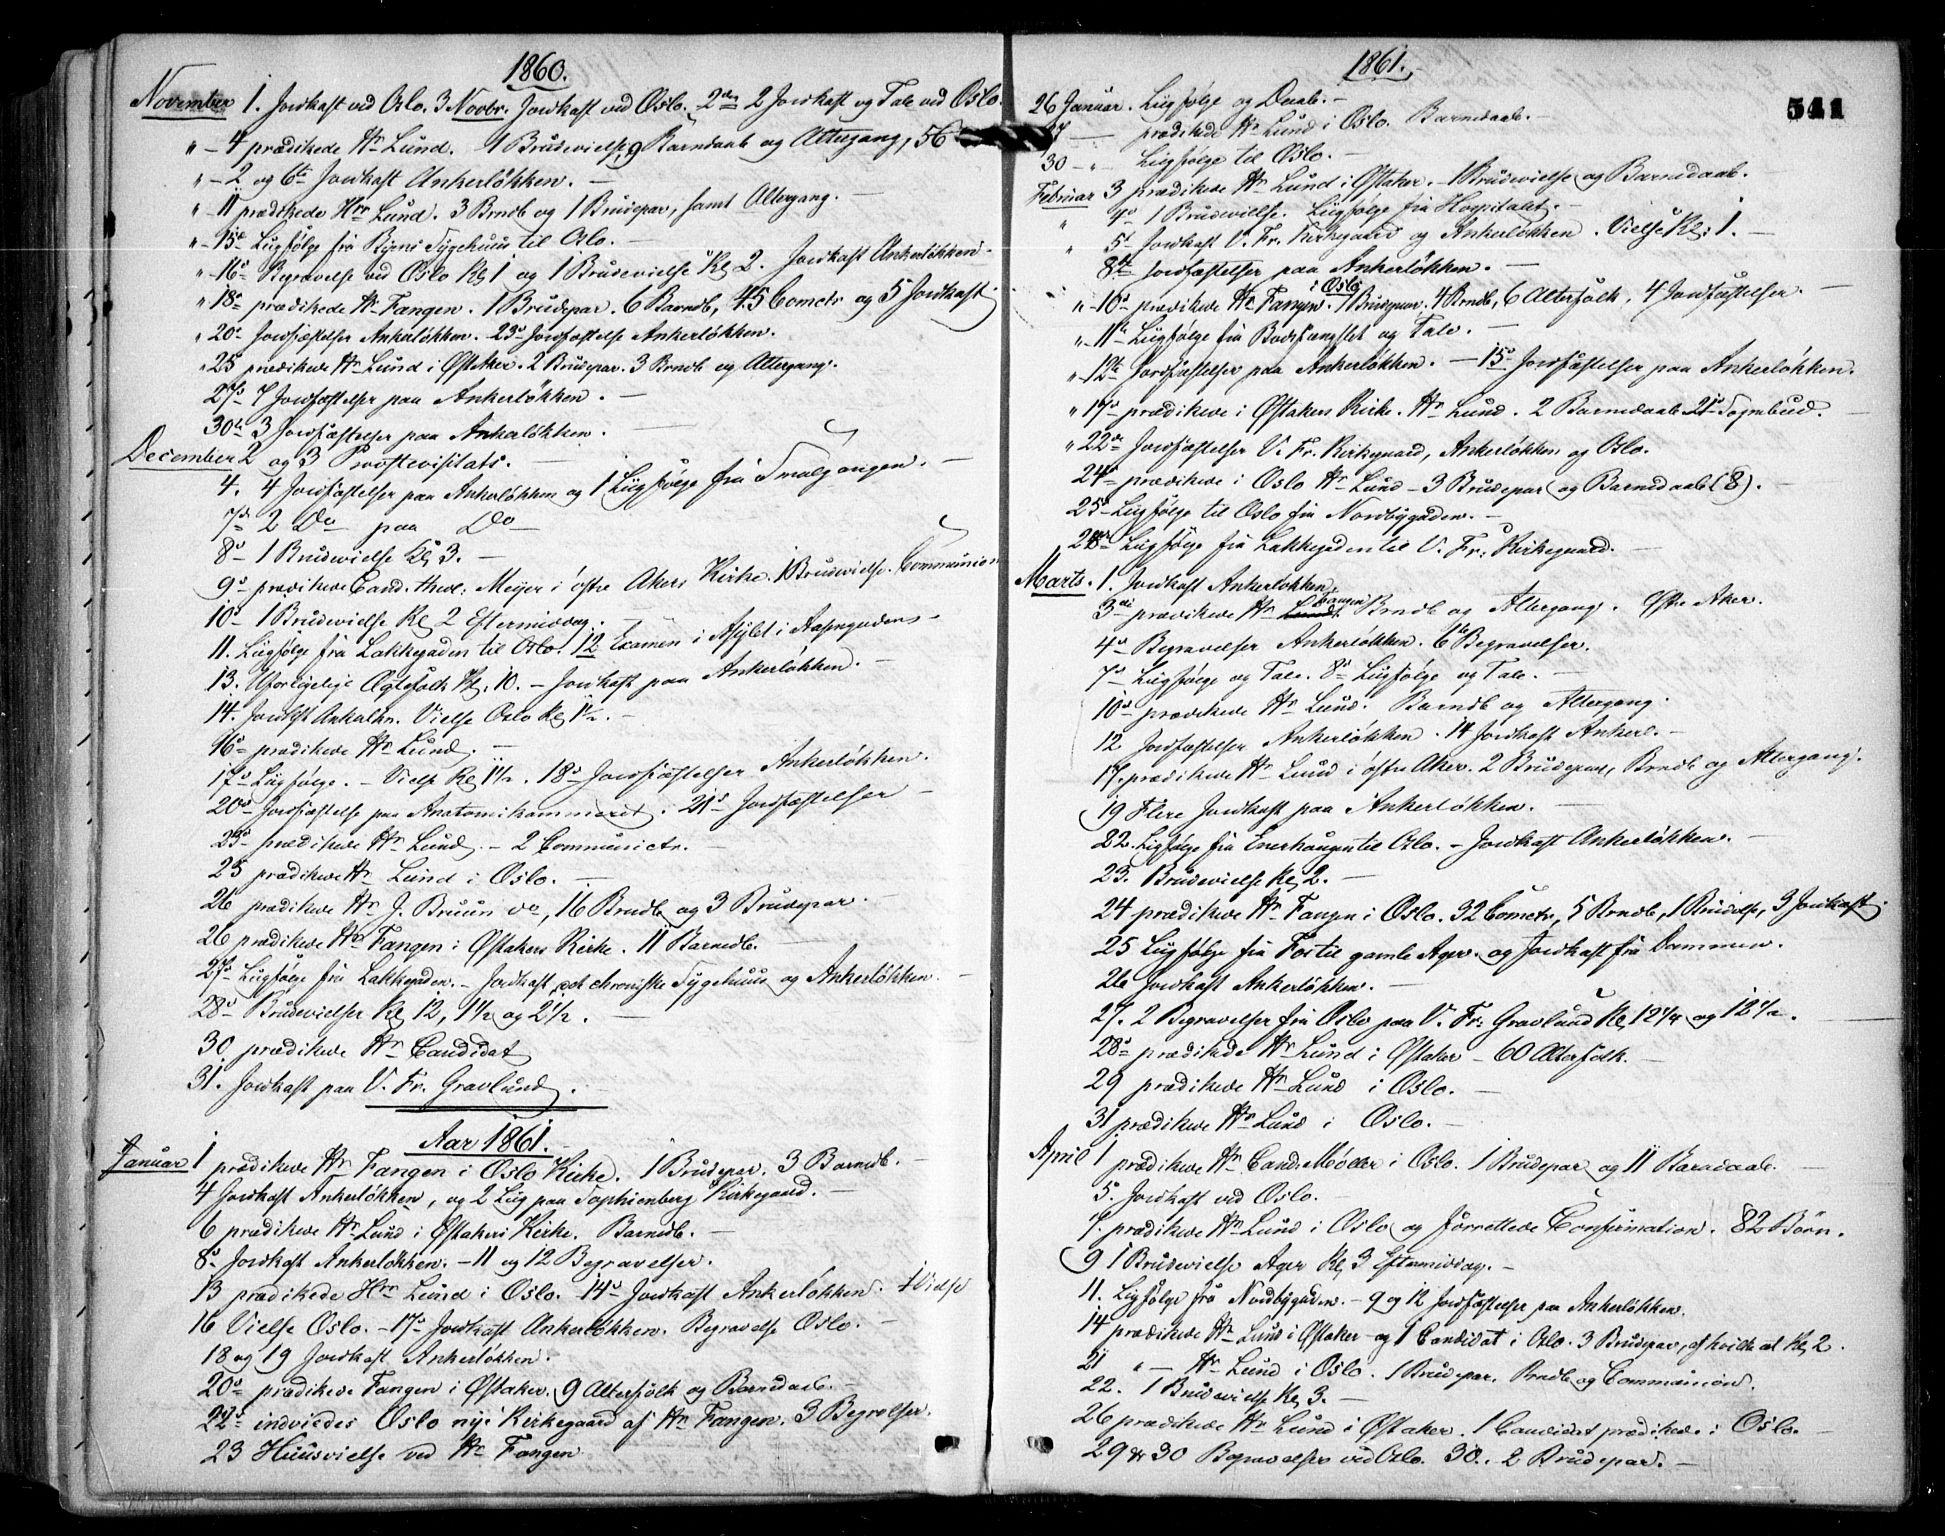 1860.
November 1. Jordkast ved Oslo. 3 Novbr. Jordkast ved Oslo. 2den 2 Jordkast og Tale ved Oslo.
" – 4 prædikede Hr Lund. 1 Brudevielse, 9 Barndaab og Altergang, 56
" – 2 og 6te Jordkast Ankerløkken. –
" – 11 prædikede Hrr Lund. 3 Brndb og 1 Brudepar, samt Altergang. –
" – 15de Liigfølge fra Byens Sygehuus til Oslo. –
" – 16d Begravelse ved Oslo Kl 1 og 1 Brudevielse Kl 2. Jordkast Ankerløkken –
" 18d prædikede Hr Fangen. 1 Brudepar. 6 Barndb, 45 Comctr og 5 Jordkast
" 20d Jordfæstelser Ankerløkken. 23d Jordfæstelse Ankerløkken.
" 25 prædikede Hr Lund i Østaker. 2 Brudepar. 3 Brndb og Altergang.
27d 7 Jordfæstelser paa Ankerløkken. –
30te 3 Jordfæstelser paa Ankerløkken. –
December 2 og 3 Provstevisitats. –
4. 4 Jordfæstelser paa Ankerløkken og 1 Liigfølge fra Smalgangen. –
7d 2 Do paa Do
8d 1 Brudevielse Kl 3. –
9d prædikede Cand. theol. Meyer i østre Akers Kirke. 1 Brudevielse. Communion
10d 1 Brudevielse Kl 2 Eftermiddag. –
11. Liigfølge fra Lakkegaden til Oslo. 12 Examen i Asylet i Aasengaden –
13. Uforligelige Ægtefolk Kl. 10. – Jordkast paa Ankerløkken. –
14. Jordkst Ankerlkn. Vielse Oslo Kl 1½. –
16d prædikede Hr Lund. –
17d Liigfølge. – Vielse Kl 1½. 18d Jordfæstelser Ankerløkken.
20d Jordfæstelse paa Anatomikammeret. 21d Jordfæstelser –
23d prædikede Hr Lund. – 2 Communictr. –
25 prædikede Hr Lund i Oslo. –
26 prædikede Hr J. Bruun do, 16 Brndb og 3 Brudepar. –
26 prædikede Hr Fangen i Østakers Kirke. 11 Barndb. –
27d Liigfølge fra Lakkegaden. – Jordkast det chroniske Sygehuus og Ankerløkken. –
28d Brudevielser Kl 12, 1½ og 2½. –
30 prædikede Hr Candidat
31. Jordkast paa V. Fr. Gravlund. –
Aar 1861. –
Januar 1 prædikede Hr Fangen i Oslo Kirke. 1 Brudepar. 3 Barndb. –
4 Jordkast Ankerløkken, og 2 Liig paa Sophienberg Kirkegaard. –
6 prædikede Hr Lund i Østakers Kirke. Barndb. –
8d Jordkast Ankerløkken. – 11 og 12 Begravelser. –
13 prædikede Hrr Lund i Oslo. – 14d Jordkast Ankerløkken. 1 Vielse
16 Vielse Oslo. – 17d Jordkast Ankerløkken. Begravelse Oslo. –
18 og 19 Jordkast Ankerløkken.
20d prædikede Fangen i Østaker. 9 Alterfolk og Barnedaab. –
22d indviedes Oslo nye Kirkegaard af Hr Fangen. 3 Begrvlser.
23 Huusvielse ved Hr Fangen
1861.
541
26 Januar. Liigfølge og Daab. –
27 – prædikede Hr Lund i Oslo. Barnedaab. –
30 – " Liigfølge til Oslo. –
Februar 3 prædikede Hr Lund i Østaker. – 1 Brudevielse og Barnedaab.
" 4d 1 Brudevielse. Liigfølge fra Hospitalet. –
" 5d Jordkast V. Fr. Kirkegaard og Ankerløkken. Vielse Kl. 1. –
8de Jordfæstelser paa Ankerløkken. –
" – 10d prædikede Hr Fangen i Oslo. 1 Brudepar. 4 Brndb, 6 Alterfolk, 4 Jordfæstelser. –
" – 11te Liigfølge fra Bodsfængslet og Tale. –
" – 12te Jordfæstelser paa Ankerløkken. – 15d Jordfæstelser paa Ankerløkken.
" 17d prædikede i Østakers Kirke. Hr Lund. 2 Barnedaab 21d Sognebud. –
" 22de Jordfæstelser V. Fr. Kirkegaard, Ankerløkken og Oslo.
24d prædikede i Oslo Hr Lund – 3 Brudepar og Barnedaab (8). –
25d Liigfølge til Oslo fra Nordbygaden. –
28de Liigfølge fra Lakkegaden til V. Fr. Kirkegaard. –
Marts. 1. Jordkast Ankerløkken,
3die prædikede Hr Fangen Brndb og Altergang. Østre Aker.
4d Begravelser Ankerløkken. 6te Begravelser.
7d Liigfølge og Tale. 8d Liigfølge og Tale. –
10d prædikede Hr Lund. Barndb og Altergang.
12 Jordfæstelser Ankerløkken. 14 Jordkast Ankerl. –
17. prædikede Hr Lund i østre Aker. 2 Brudepar, Brndb og Altergang.
19 Flere Jordkast paa Ankerløkken. –
22. Liigfølge fra Enerhaugen til Oslo. – Jordkast Ankerløkken. –
23. Brudevielse Kl 2. –
24 prædikede Hr Fangen i Oslo. 32 Comctr, 5 Brndb, 1 Brudvlse, 3 Jordkast.
25 Liigfølge fra Fos til gamle Ager. og Jordkast fra Dammen. –
26 Jordkast Ankerløkken. –
27. 2 Begravelser fra Oslo paa V. Fr. Gravlund Kl 12¼ og 12½. –
28d prædikede Hr Lund i Østaker – 60 Alterfolk. –
29 prædikede Hr Lund i Oslo. –
31 prædikede Hr Lund i Oslo. –
April 1 prædikede Hr Cand. Møller i Oslo. 1 Brudepar og 11 Barnedaab. –
5. Jordkast ved Oslo.
7. prædikede Hr Lund i Oslo og forrettede Confirmation. 82 Børn.
9 1 Brudevielse Ager Kl 3 Eftermiddag. –
11. Liigfølge fra Nordbygaden. – 9 og 12 Jordfæstelser paa Ankerløkken.
14 prædikede Hr Lund i Østaker – og 1 Candidat i Oslo. 3 Brudepar, af hvilke et Kl 2.
21 " – Hr Lund i Oslo. 1 Brudepar. Brndb og Communion.
22. 1 Brudevielse Kl 3. –
26 prædikede Hr Lund i Østaker. 1 Candidat prædikede i Oslo. –
29 & 30 Begravelser ved Oslo. 30. 2 Brudepar. –